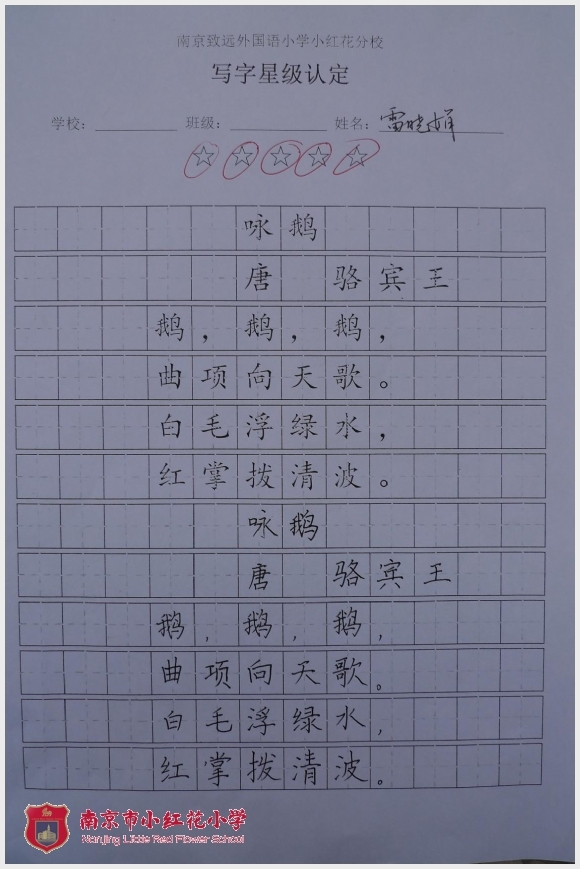 南京致远外国语小学小红花分校
写字星级认定
学校： 班级： 姓名：雷晓娟
咏鹅
唐 骆宾王
鹅，鹅，鹅，
曲项向天歌。
白毛浮绿水，
红掌拨清波。
咏鹅
唐 骆宾王
鹅，鹅，鹅，
曲项向天歌。
白毛浮绿水，
红掌拨清波。
南京市小红花小学
Nanjing Little Red Flower School